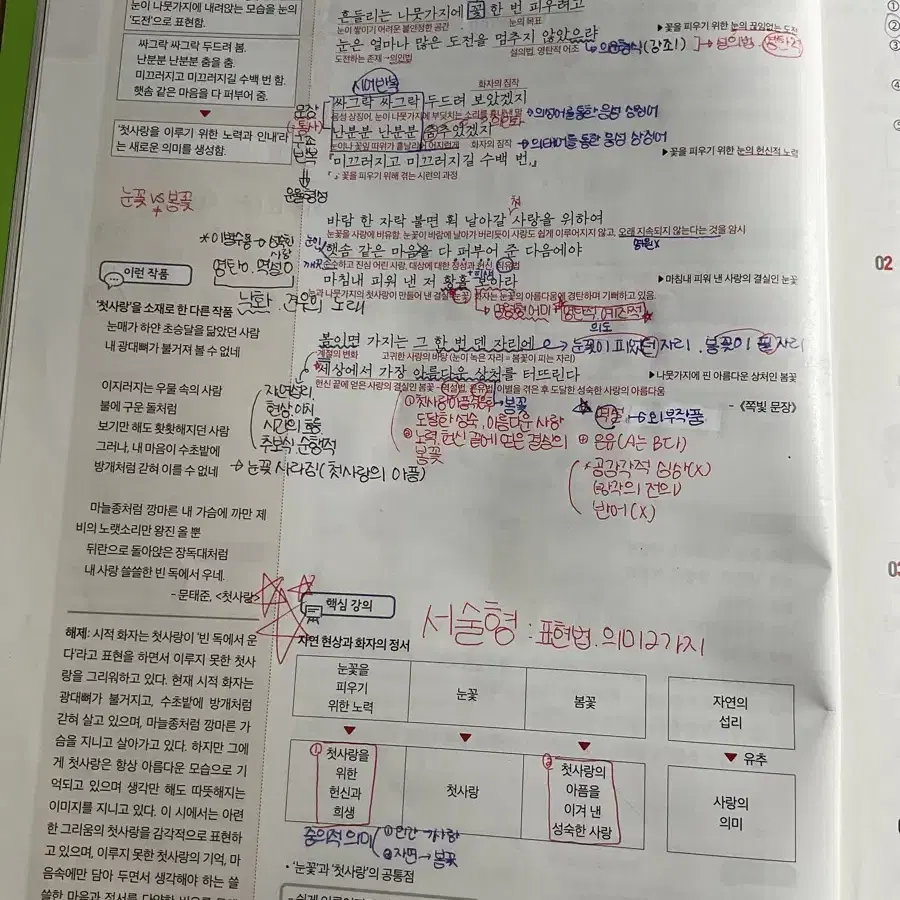 눈이 나뭇가지에 내려앉는 모습을 눈의
'도전'으로 표현함.
싸그락 싸그락 두드려 봄.
난분분 난분분 춤을 춤.
미끄러지고 미끄러지길 수백 번 함.
햇솜 같은 마음을 다 퍼부어 줌.
'첫사랑을 이루기 위한 노력과 인내'라
는 새로운 의미를 생성함.
눈꽃 vs 봄꽃
이런 작품
'첫사랑'을 소재로 한 다른 작품
눈매가 하얀 초승달을 닮았던 사람
내 광대뼈가 불거져 볼 수 없네
이지러지는 우물 속의 사람
불에 구운 돌처럼
보기만 해도 홧홧해지던 사람
그러나, 내 마음이 수초밭에
방개처럼 갇혀 이를 수 없네
마늘종처럼 깡마른 내 가슴에 까만 제
비의 노랫소리만 왕진 올 뿐
뒤란으로 돌아앉은 장독대처럼
내 사랑 쓸쓸한 빈 독에서 우네.
- 문태준, <첫사랑>
해제: 시적 화자는 첫사랑이 '빈 독에서 운
다'라고 표현을 하면서 이루지 못한 첫사
랑을 그리워하고 있다. 현재 시적 화자는
광대뼈가 불거지고, 수초밭에 방개처럼
갇혀 살고 있으며, 마늘종처럼 깡마른 가
슴을 지니고 살아가고 있다. 하지만 그에
게 첫사랑은 항상 아름다운 모습으로 기
억되고 있으며 생각만 해도 따뜻해지는
이미지를 지니고 있다. 이 시에서는 아련
한 그리움의 첫사랑을 감각적으로 표현하
고 있으며, 이루지 못한 첫사랑의 기억, 마
음속에만 담아 두면서 생각해야 하는 쓸
흔들리는 나뭇가지에 꽃 한 번 피우려고
눈이 쌓이기 어려운 불안정한 공간 눈의 목표
눈은 얼마나 많은 도전을 멈추지 않았으랴
도전하는 존재 → 의인법 설의법, 영탄적 어조
▶ 꽃을 피우기 위한 눈의 끊임없는 도전
시어반복
화자의 짐작
싸그락 싸그락 두드려 보았겠지
→ 의성어를 통한 음성 상징어
난분분 난분분 춤추었겠지
화자의 짐작 → 의태어를 통한 음성 상징어
미끄러지고 미끄러지길 수백 번,
▶ 꽃을 피우기 위한 눈의 헌신적 노력
『 』: 꽃을 피우기 위해 겪는 시련의 과정
문장
구조
반복
운율형성
첫
바람 한 자락 불면 휙 날아갈 사랑을 위하여
눈꽃을 사랑에 비유함. 눈꽃이 바람에 날아가 버리듯이 사랑도 쉽게 이루어지지 않고, 오래 지속되지 않는다는 것을 암시
영원X
햇솜 같은 마음을 다 퍼부어 준 다음에야
순수하고 진심 어린 사랑. 대상에 대한 정성과 헌신, 직유법
마침내 피워 낸 저 황홀 보아라
▶ 마침내 피워 낸 사랑의 결실인 눈꽃
눈과 나뭇가지의 첫사랑이 만들어 낸 결실(눈꽃) 화자는 눈꽃의 아름다움에 경탄하며 기뻐하고 있음.
→ 명령형 어미
봄이면 가지는 그 한 번 덴 자리에
→ 눈꽃이 피었던 자리. 봄꽃이 필 자리
계절의 변화 고귀한 사랑의 바탕 (눈이 녹은 자리 = 봄꽃이 피는 자리)
세상에서 가장 아름다운 상처를 터뜨린다
▶ 나뭇가지에 핀 아름다운 상처인 봄꽃
헌신 끝에 얻은 사랑의 결실인 봄꽃 - 역설법, 은유법, 이별을 겪은 후 도달한 성숙한 사랑의 아름다움
-《쪽빛 문장》
자연섭리,
현상, 이치
시간의 흐름
추보식 순행적
→ 눈꽃 사라짐(첫사랑의 아픔)
도달한 성숙, 아름다운 사랑
② 노력, 헌신 끝에 얻은 결실의
봄꽃
역설 → 외부작품
은유(A는 B다)
* 공감각적 심상(X)
(감각의 전이)
반어(X)
핵심 강의
서술형 : 표현법. 의미 2가지
자연 현상과 화자의 정서
눈꽃을
피우기
위한 노력
눈꽃
봄꽃
자연의
섭리
유추
① 첫사랑을
위한
헌신과
희생
첫사랑
② 첫사랑의
아픔을
이겨 낸
성숙한 사랑
사랑의
의미
중의적 의미
① 인간 → 사랑
② 자연 → 봄꽃
• '눈꽃'과 '첫사랑'의 공통점
02